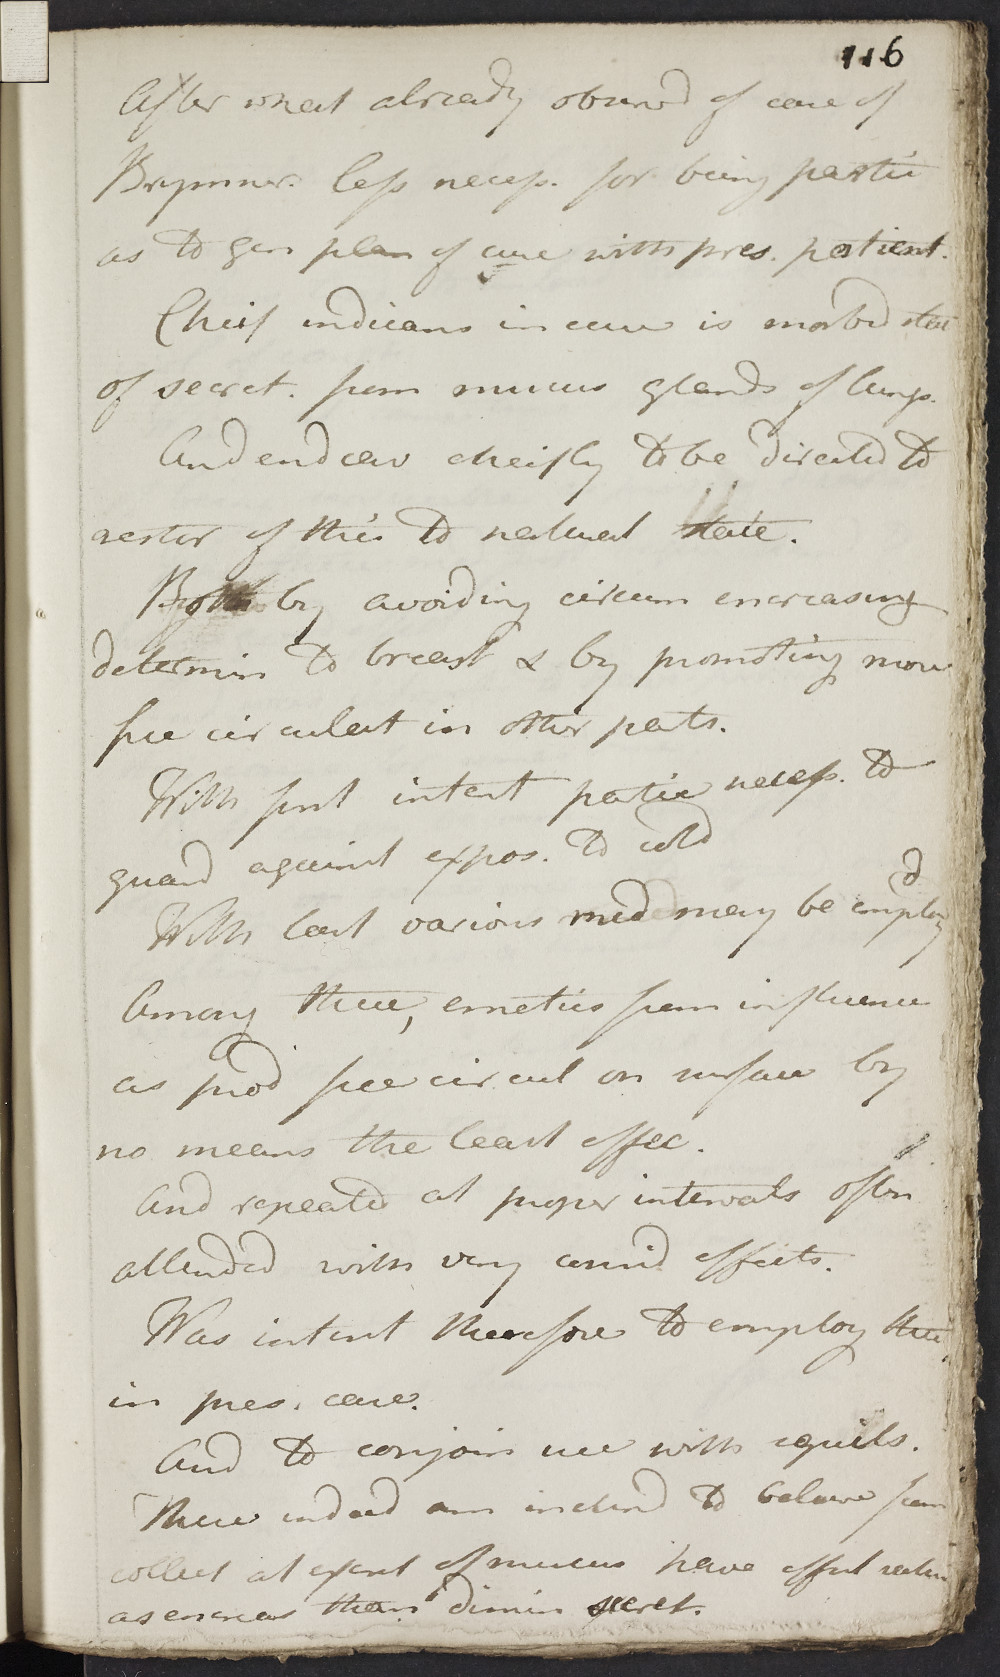 116
After what already observd of case of
Brymner. less necess. for being partic
as to gen plan of cure with pres. patient.
Cheif indicans in case is morbid state
of secret. from mucus glands of lungs.
And endeav cheifly to be directed to
restor of this to natural state.
Both by avoiding circum encreasing
determin to breast & by promoting more
free circulat in other parts.
With first intent partic necess. to
guard against expos. to cold
With last various med may be employd
Among these, emetics from influence
as prod free circul on surface by
no means the least effec.
And repeated at proper intervals often
attended with very consid effects.
Was intent therefore to employ these
in pres. case.
And to conjoin use with squills.
These indeed am inclind to beleive from
collect at of mucus have effect rather
as encreas than dimin secret.